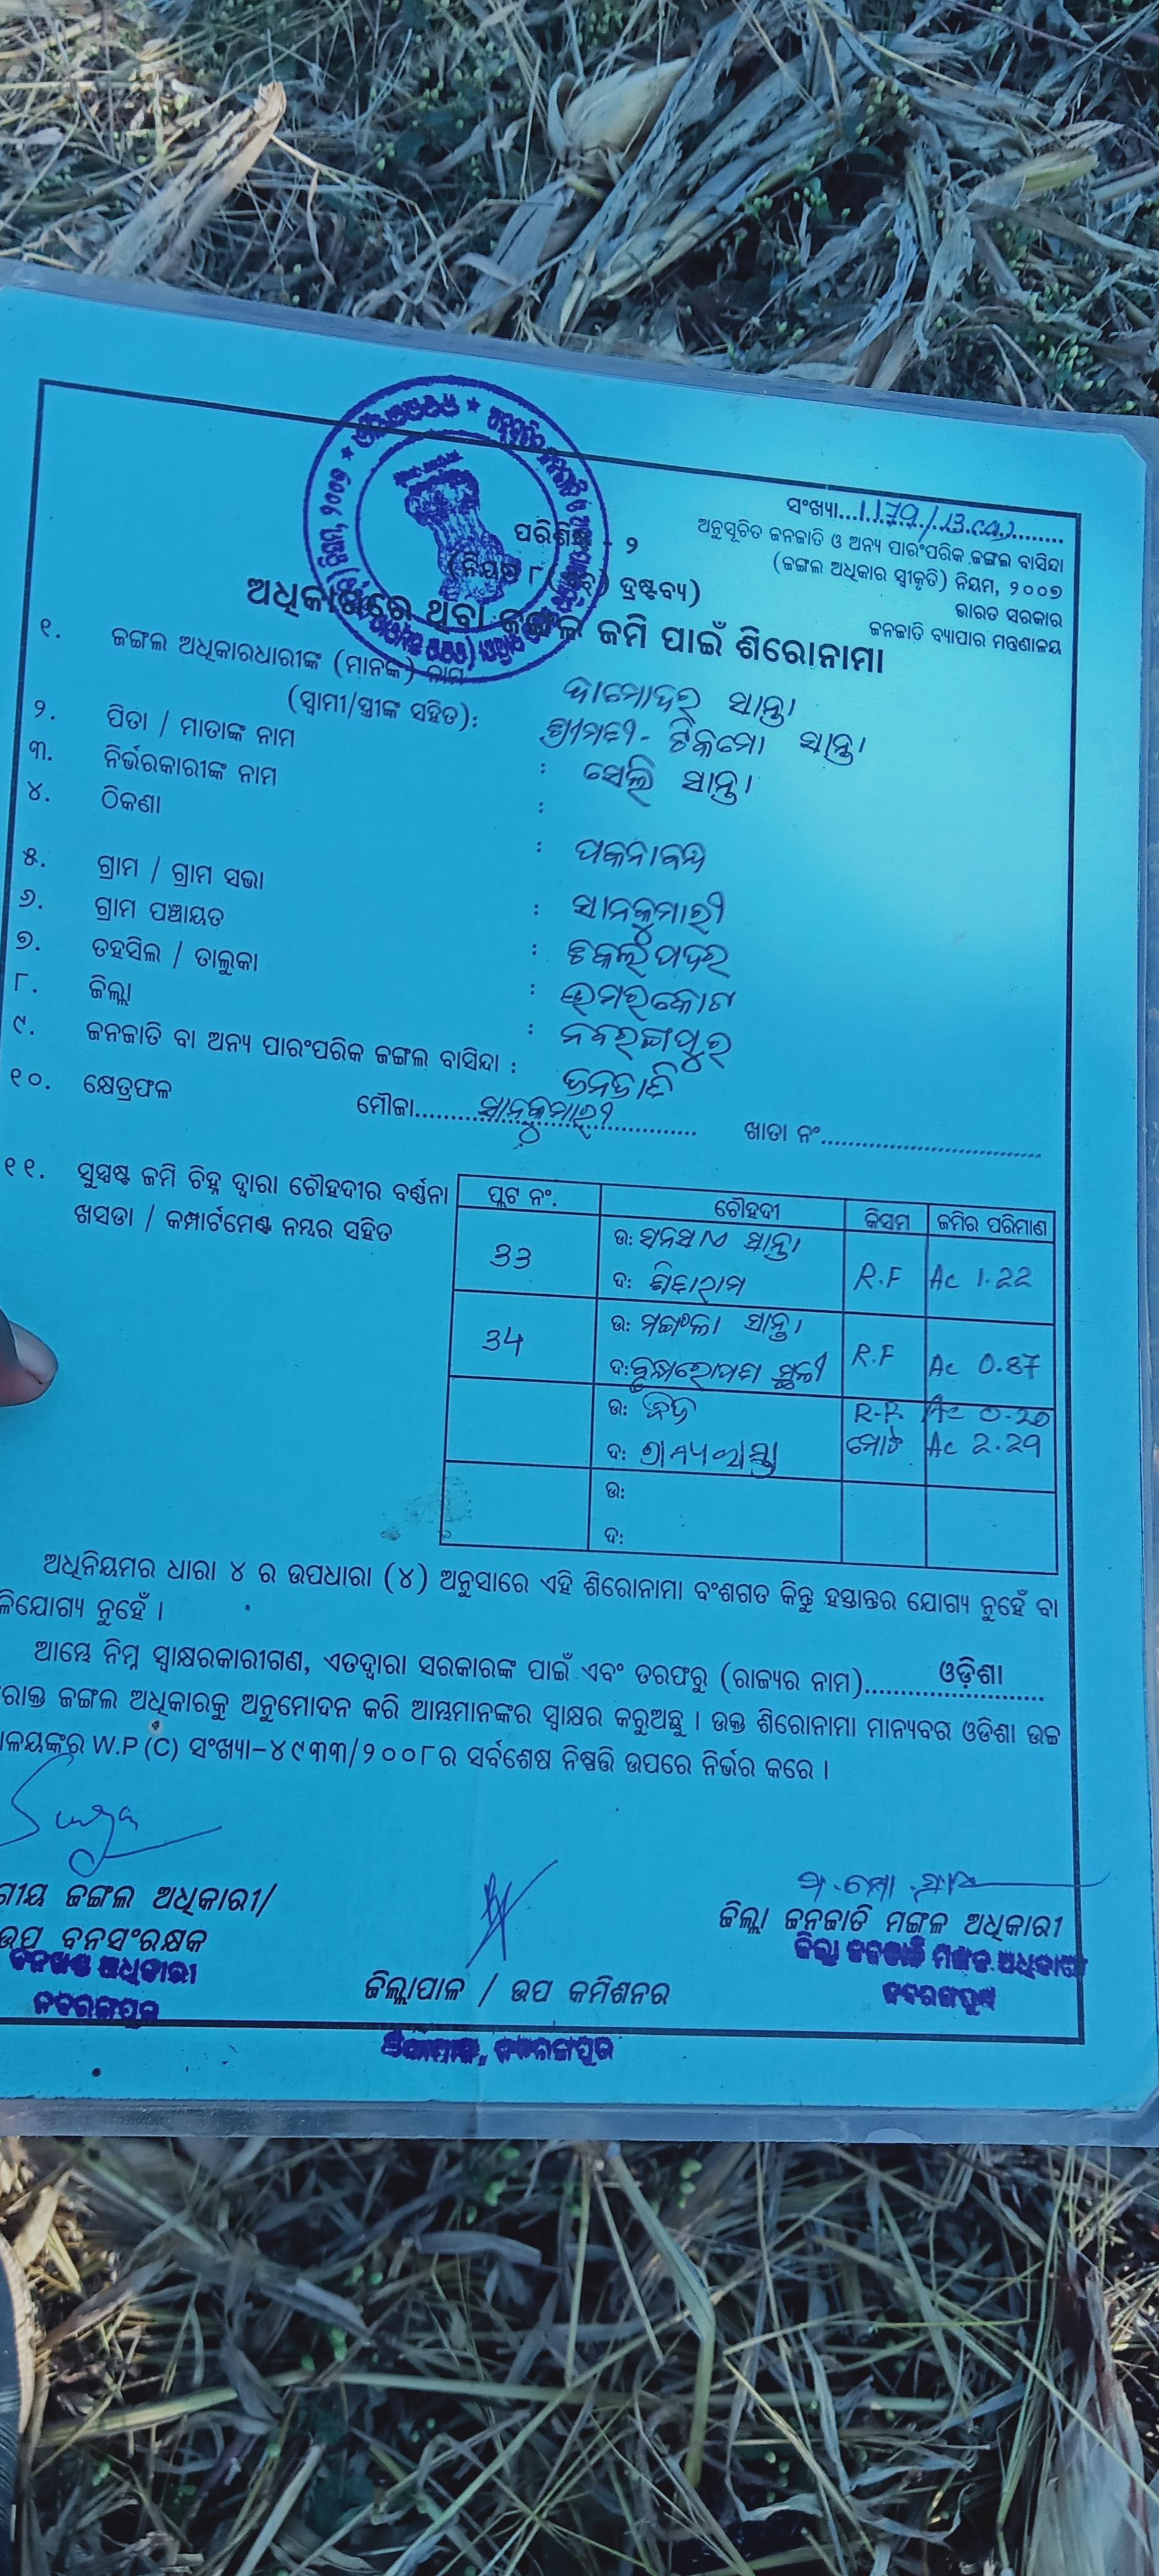 ସଂଖ୍ୟା....1179/13
ଅନୁସୂଚିତ ଜନଜାତି ଓ ଅନ୍ୟ ପାରଂପରିକ ଜଙ୍ଗଲ ବାସିନ୍ଦା
(ଜଙ୍ଗଲ ଅଧିକାର ସ୍ୱୀକୃତି) ନିୟମ, ୨୦୦୭
ଭାରତ ସରକାର
ଜନଜାତି ବ୍ୟାପାର ମନ୍ତ୍ରଣାଳୟ
ପରିଶିଷ୍ଟ - ୨
(ନିୟମ ୮ ଦ୍ରଷ୍ଟବ୍ୟ)
ଅଧିକାରରେ ଥିବା ଜଙ୍ଗଲ ଜମି ପାଇଁ ଶିରୋନାମା
୧. ଜଙ୍ଗଲ ଅଧିକାରଧାରୀଙ୍କ (ମାନଙ୍କ) ନାମ ଦାମୋଦର ସାନ୍ତା
(ସ୍ୱାମୀ/ସ୍ତ୍ରୀଙ୍କ ସହିତ): ଶ୍ରୀମତୀ- ଟିକମୋ ସାନ୍ତା
୨. ପିତା / ମାତାଙ୍କ ନାମ : ସେଲି ସାନ୍ତା
୩. ନିର୍ଭରକାରୀଙ୍କ ନାମ :
୪. ଠିକଣା : ପକନାବନ୍ଧ
୫. ଗ୍ରାମ / ଗ୍ରାମ ସଭା : ସାନକୁମାରୀ
୬. ଗ୍ରାମ ପଞ୍ଚାୟତ : ଚକଲପଦର
୭. ତହସିଲ / ତାଲୁକା : ଉମରକୋଟ
୮. ଜିଲ୍ଲା : ନବରଙ୍ଗପୁର
୯. ଜନଜାତି ବା ଅନ୍ୟ ପାରଂପରିକ ଜଙ୍ଗଲ ବାସିନ୍ଦା : ଜନଜାତି
୧୦. କ୍ଷେତ୍ରଫଳ ମୌଜା....ସାନକୁମାରୀ.... ଖାତା ନଂ....
୧୧. ସୁସ୍ପଷ୍ଟ ଜମି ଚିହ୍ନ ଦ୍ୱାରା ଚୌହଦୀର ବର୍ଣ୍ଣନା
ଖସଡା / କମ୍ପାର୍ଟମେଣ୍ଟ ନମ୍ବର ସହିତ
ପ୍ଲଟ ନଂ. ଚୌହଦୀ କିସମ ଜମିର ପରିମାଣ
33 ଉ: ସାନ୍ତା
ଦ: ଶିବାରାମ R.F Ac 1.22
34 ଉ: ମଙ୍ଗଳା ସାନ୍ତା
ଦ: ବୃକ୍ଷରୋପଣ ସ୍ଥଳୀ R.F Ac 0.87
ଉ: R.F. Ac 0.20
ଦ: ଗ୍ରାମ୍ୟରାସ୍ତା ମୋଟ Ac 2.29
ଉ:
ଦ:
ଅଧିନିୟମର ଧାରା ୪ ର ଉପଧାରା (୪) ଅନୁସାରେ ଏହି ଶିରୋନାମା ବଂଶଗତ କିନ୍ତୁ ହସ୍ତାନ୍ତର ଯୋଗ୍ୟ ନୁହେଁ ବା
ଳିଯୋଗ୍ୟ ନୁହେଁ ।
ଆମ୍ଭେ ନିମ୍ନ ସ୍ୱାକ୍ଷରକାରୀଗଣ, ଏତଦ୍ୱାରା ସରକାରଙ୍କ ପାଇଁ ଏବଂ ତରଫରୁ (ରାଜ୍ୟର ନାମ)....ଓଡ଼ିଶା....
ରୋକ୍ତ ଜଙ୍ଗଲ ଅଧିକାରକୁ ଅନୁମୋଦନ କରି ଆମ୍ଭମାନଙ୍କର ସ୍ୱାକ୍ଷର କରୁଅଛୁ । ଉକ୍ତ ଶିରୋନାମା ମାନ୍ୟବର ଓଡିଶା ଉଚ୍ଚ
ାଳୟଙ୍କର W.P (C) ସଂଖ୍ୟା-୪୯୩୩/୨୦୦୮ର ସର୍ବଶେଷ ନିଷ୍ପତ୍ତି ଉପରେ ନିର୍ଭର କରେ ।
ଗୀୟ ଜଙ୍ଗଲ ଅଧିକାରୀ/
ଉପ ବନସଂରକ୍ଷକ
ବନଖଣ୍ଡ ଅଧିକାରୀ
ନବରଙ୍ଗପୁର
ଜିଲ୍ଲାପାଳ / ଉପ କମିଶନର
ଜିଲ୍ଲାପାଳ, ନବରଙ୍ଗପୁର
ଜିଲ୍ଲା ଜନଜାତି ମଙ୍ଗଳ ଅଧିକାରୀ
ଜିଲ୍ଲା ଜନଜାତି ମଙ୍ଗଳ ଅଧିକାରୀ
ନବରଙ୍ଗପୁର